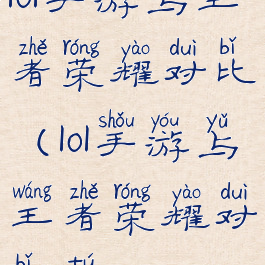 lol手游与王
zhě róng yào duì bǐ
者荣耀对比
shǒu yóu yǔ
(lol手游与
wáng zhě róng yào duì
王者荣耀对
bǐ tú